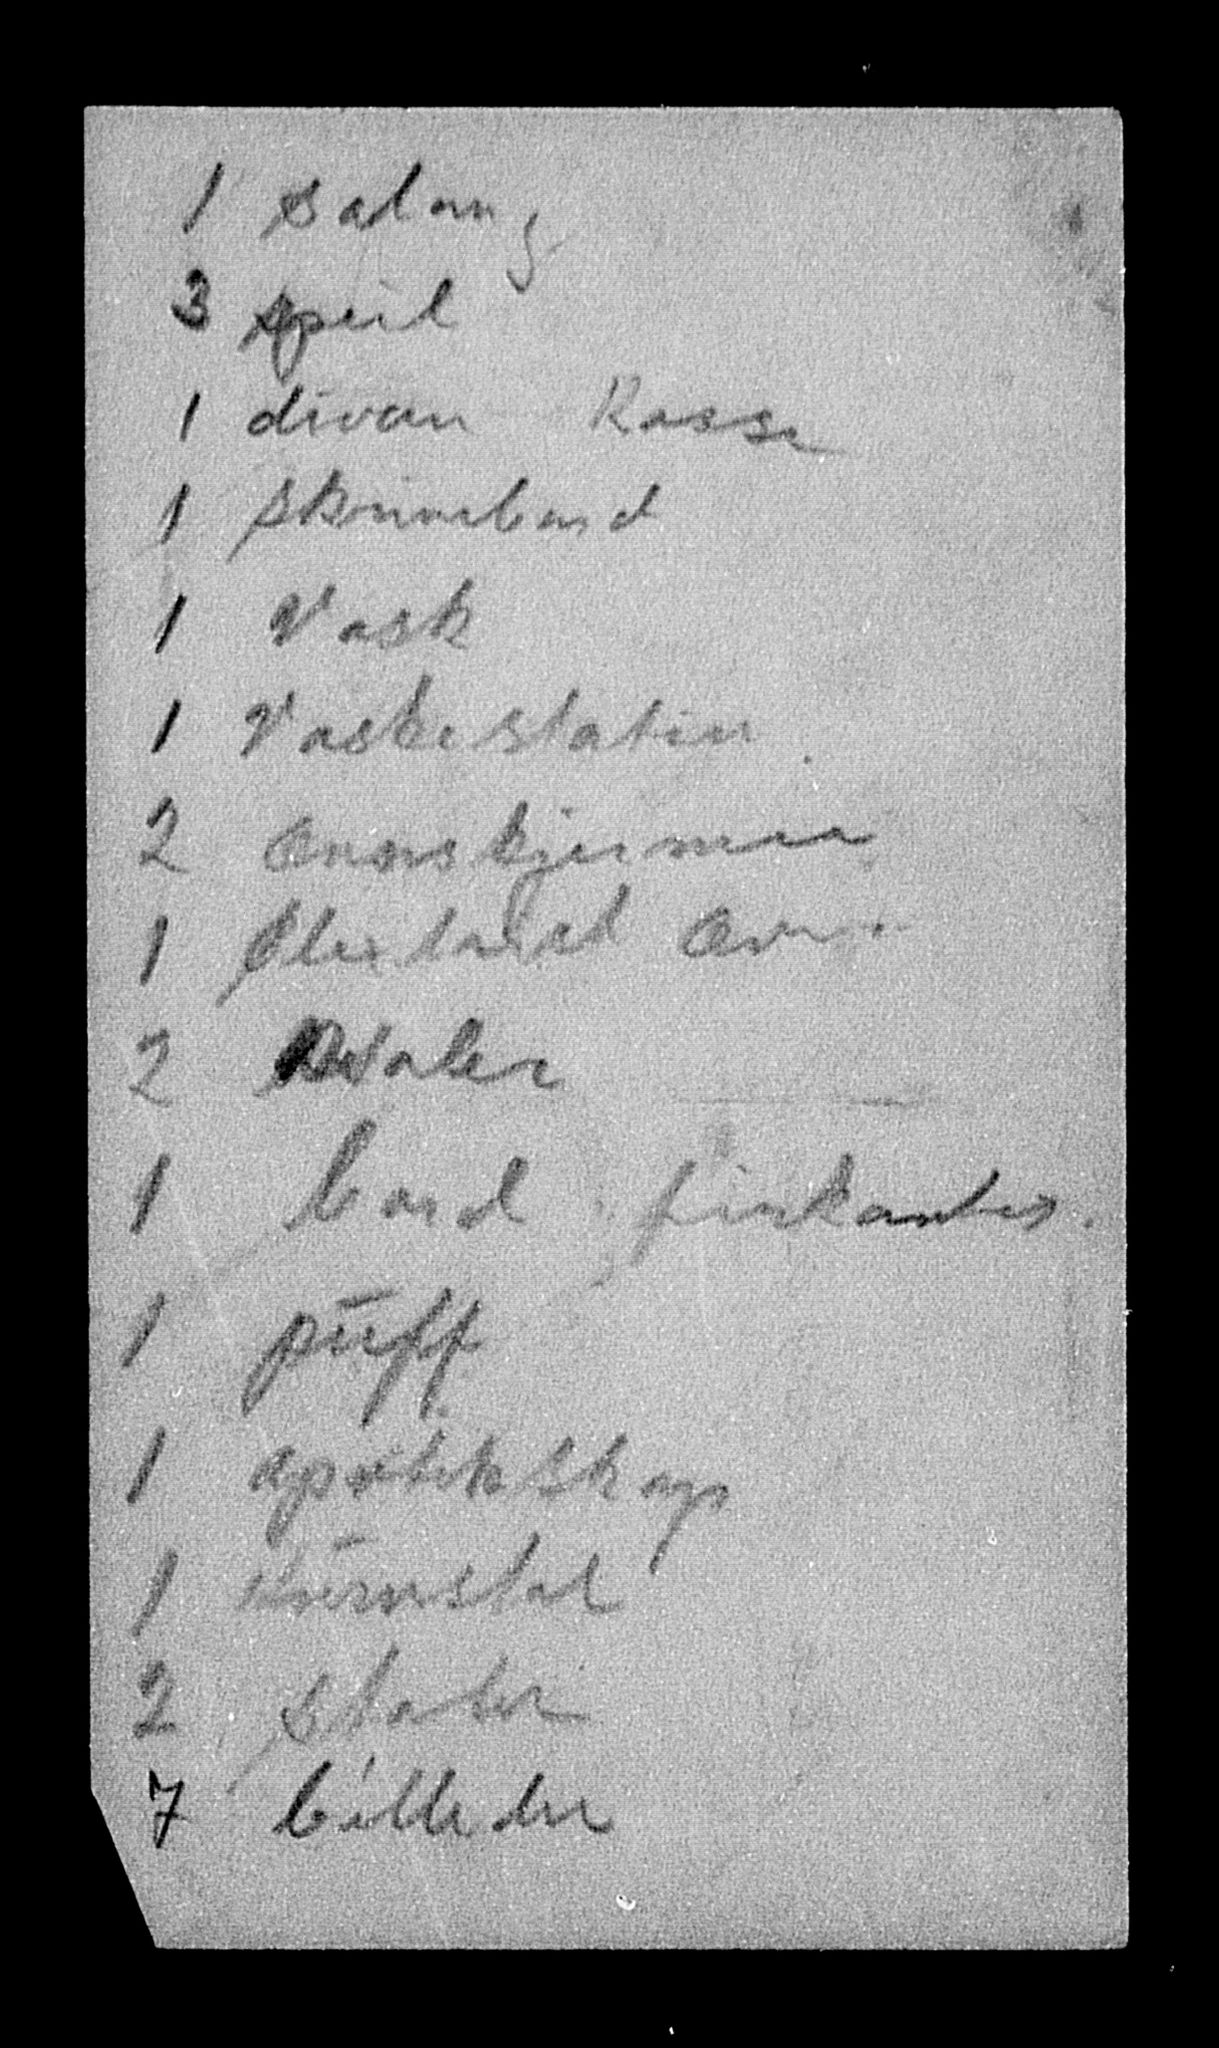 1 salong
3 speil
1 divan Kasse
1 skrivebord
1 Vask
1 Vaskestativ
2 ovnsskjermer
1 Elektrisk ovn
2
1 bord firkantet.
1 puff
1 apotekskap
1 kurvstol
2 stoler
7 billeder